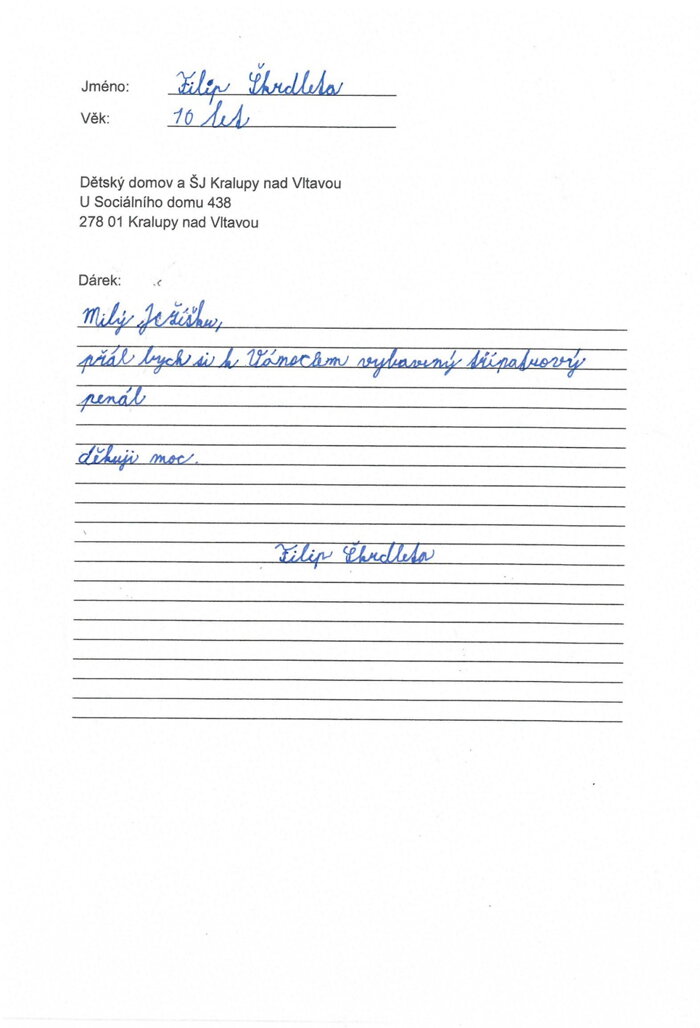 Jméno: Filip Škrdleta
Věk: 10 let
Dětský domov a ŠJ Kralupy nad Vltavou
U Sociálního domu 438
278 01 Kralupy nad Vltavou
Dárek:
Milý Ježíšku,
přál bych si k Vánocům vybavený třípatrový
penál
děkuji moc.
Filip Škrdleta